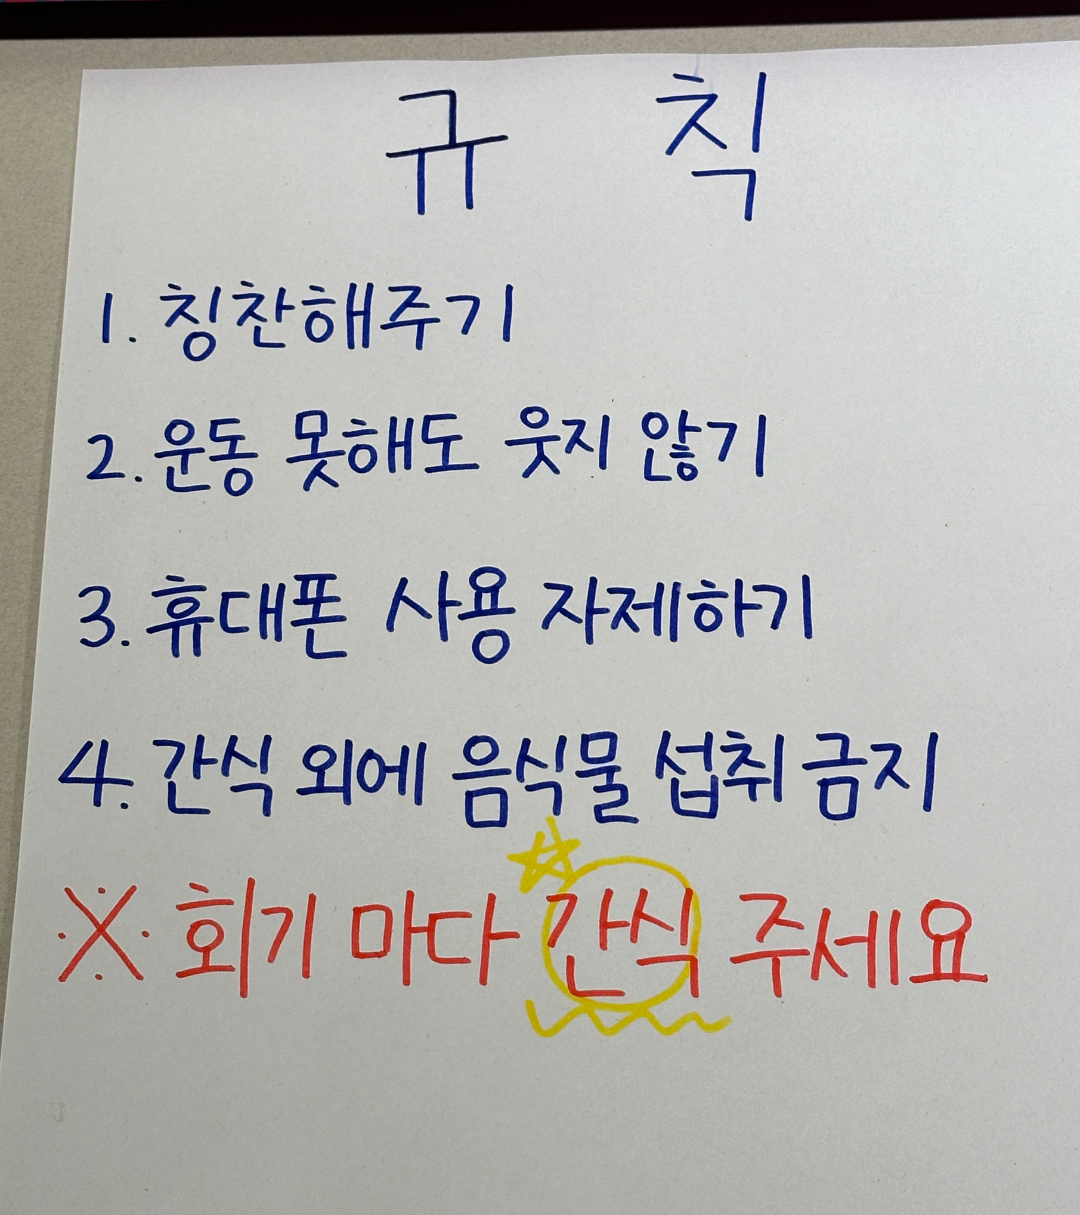 규 칙
1. 칭찬해주기
2. 운동 못해도 웃지 않기
3. 휴대폰 사용 자제하기
4. 간식 외에 음식물 섭취 금지
※ 회기 마다 간식 주세요